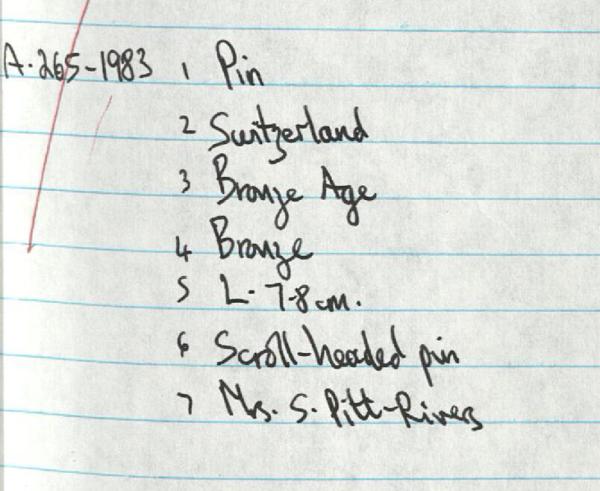 A.265-1983 1 Pin
2 Switzerland
3 Bronze Age
4 Bronze
5 L. 7.8 cm.
6 Scroll-headed pin
7 Mrs. S. Pitt-Rivers